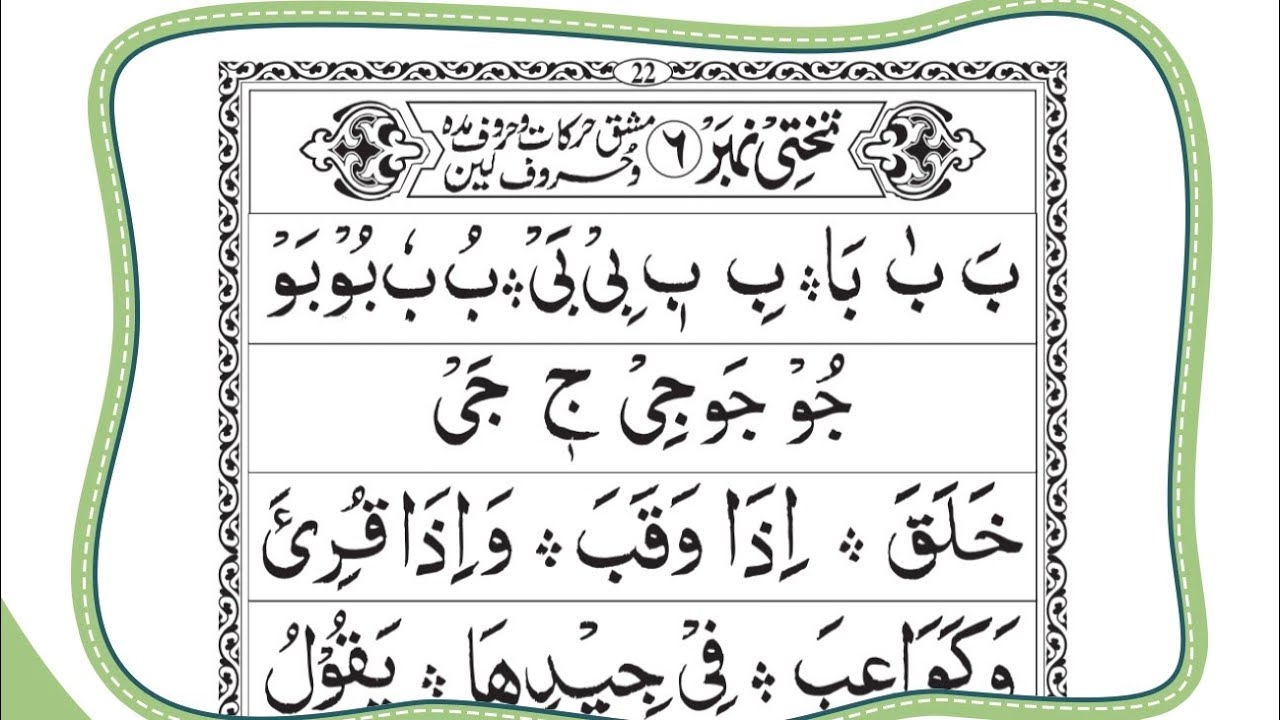 22
تختی نمبر ٦ مشق حرکات و حروف مدہ
و حروف لین
بَ بٰ بَا ؞ بِ بٖ بِیْ بَیْ ؞ بُ بٗ بُوْ بَوْ
جُوْ جَو جِیْ جٖ جَیْ
خَلَقَ ؞ اِذَا وَقَبَ ؞ وَاِذَا قُرِئَ
وَكَوَاعِبَ ؞ فِیْ جِیْدِهَا ؞ یَقُوْلُ